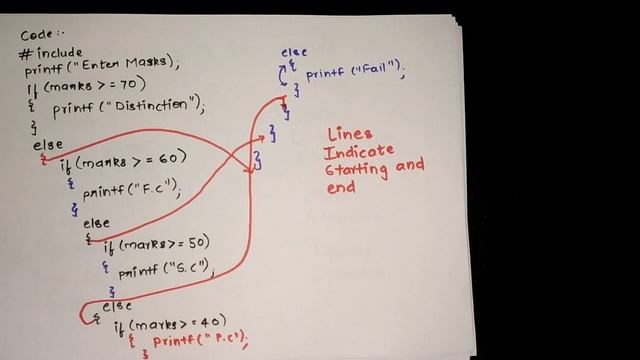 Code :-
# include
printf ("Enter Masks);
if (marks >= 70)
{ printf ("Distinction");
}
else
{
if (marks >= 60)
{
printf ("F.C");
}
else
{
if (marks >= 50)
{ printf ("S.C");
}
else
{
if (marks >= 40)
{ printf ("P.C");
}
else
{
printf ("Fail");
}
}
}
}
Lines
Indicate
Starting and
end